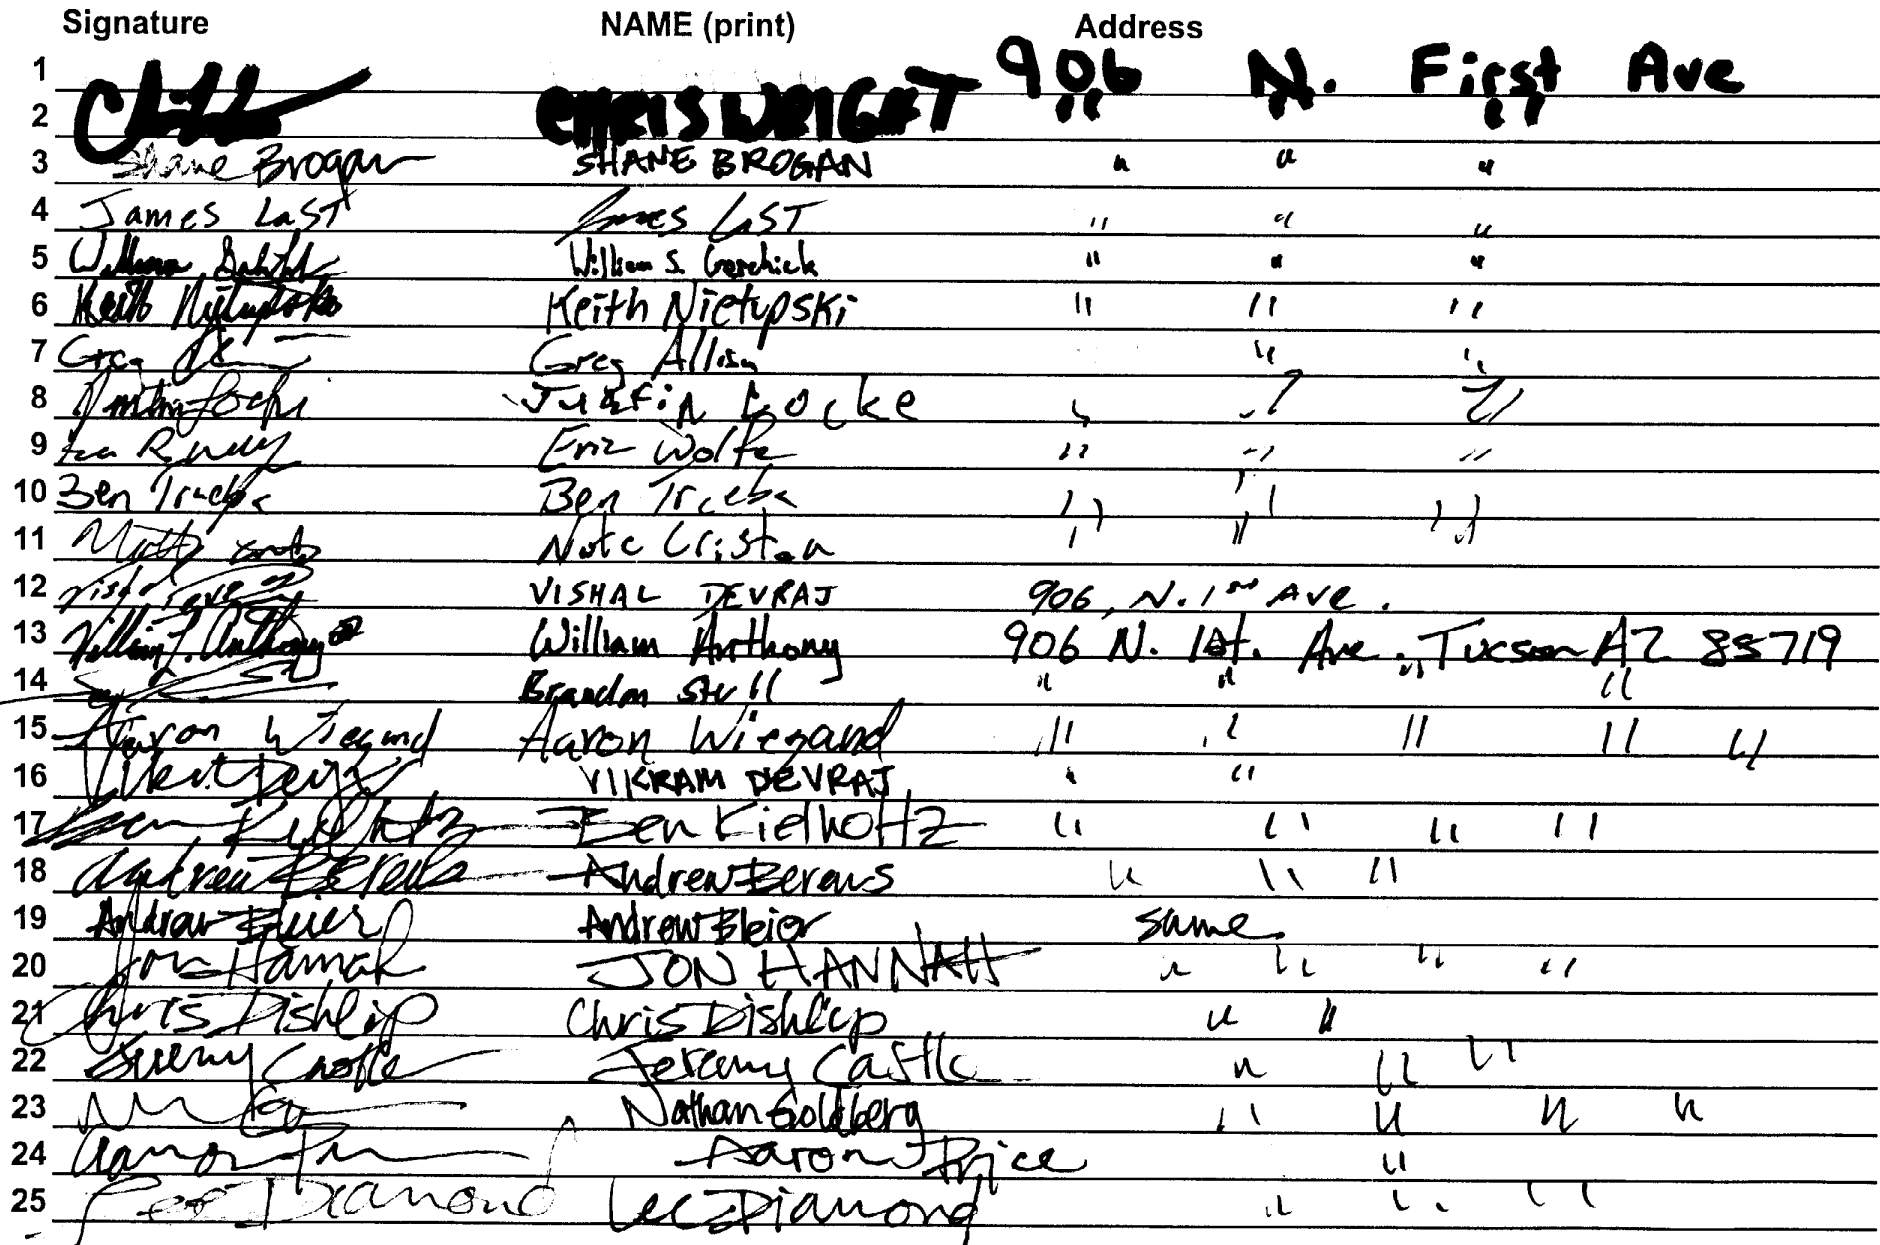 Signature NAME (print) Address
1 906 N. First Ave
2 CHRIS WRIGHT " " "
3 Shane Brogan SHANE BROGAN " " "
4 James Last James LAST " " "
5 William S. " " "
6 Keith Nietupski Keith Nietupski " " "
7 Greg Greg Allison " "
8 Justin Locke " " "
9 Eric Wolfe " " "
10 Ben Trueba Ben Trueba " " "
11 Nate " " "
12 VISHAL DEVRAJ 906, N. 1st Ave.
13 William J. Anthony William Anthony 906 N. 1st. Ave. Tucson AZ 85719
14 Brandon Stull " " " "
15 Aaron Wiegand Aaron Wiegand " " " " "
16 VIKRAM DEVRAJ " "
17 Ben Kielholtz Ben Kielholtz " " " "
18 Andrew Berens Andrew Berens " " "
19 Andrew Bleier Andrew Bleier same
20 Jon Hannah JON HANNAH " " " "
21 Chris Dishlip Chris Dishlip " "
22 Jeremy Castle Jeremy Castle " " "
23 Nathan Goldberg " " " "
24 Aaron Aaron J Price "
25 Lee Diamond Lee Diamond " " "